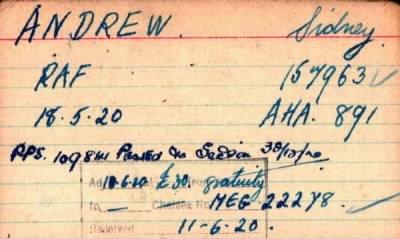 ANDREW. Sidney
RAF 157963
18.5.20 AHA. 891
PPS. 1098m Passed to Section 30/12/20
10-6-20 £30. gratuity
to Chelsea No MEG 22278.
Received 11-6-20.